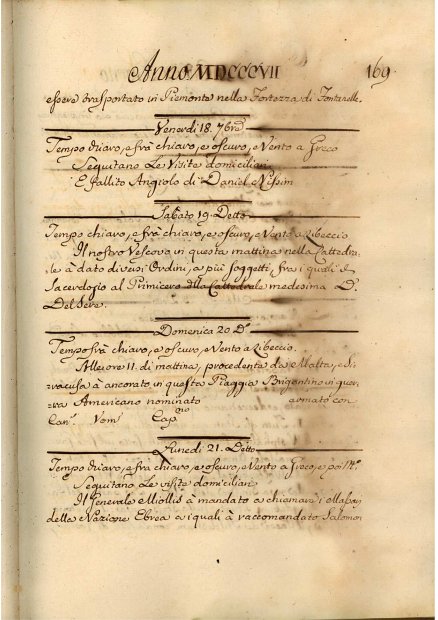 Anno MDCCCVII 169
essere trasportato in Piemonte nella Fortezza di Fenestrelle.
Venerdi 18. 7bre
Tempo chiaro, e frà chiaro, e oscuro, e Vento a Greco
Seguitano Le Visite domiciliari.
E fallito Angiolo di Daniel Nissim
Sabato 19. Detto
Tempo chiaro, e frà chiaro, e oscuro, e Vento a Libeccio
Il nostro Vescovo in questa mattina nella Cattedra-
le à dato diversi Ordini, a più Soggetti, fra i quali il
Sacerdozio al Primicero della Cattedrale medesima D.
Del Sere.
Domenica 20 Dº
Tempo frà chiaro, e oscuro, e Vento a Libeccio.
Alle ore 11. di mattina, procedente da Malta, e Si-
racusa à ancorato in questa Piaggia Brigantino in guer-
ra Americano nominato armato con
Can.i Vom.i Cap.no
Lunedi 21. Detto
Tempo chiaro, e frà chiaro, e oscuro, e Vento a Greco, e poi
Seguitano Le visite domiciliari
Il Generale Miollis à mandato a chiamar i Massari
della Nazione Ebrea a i quali à raccomandato Salomon